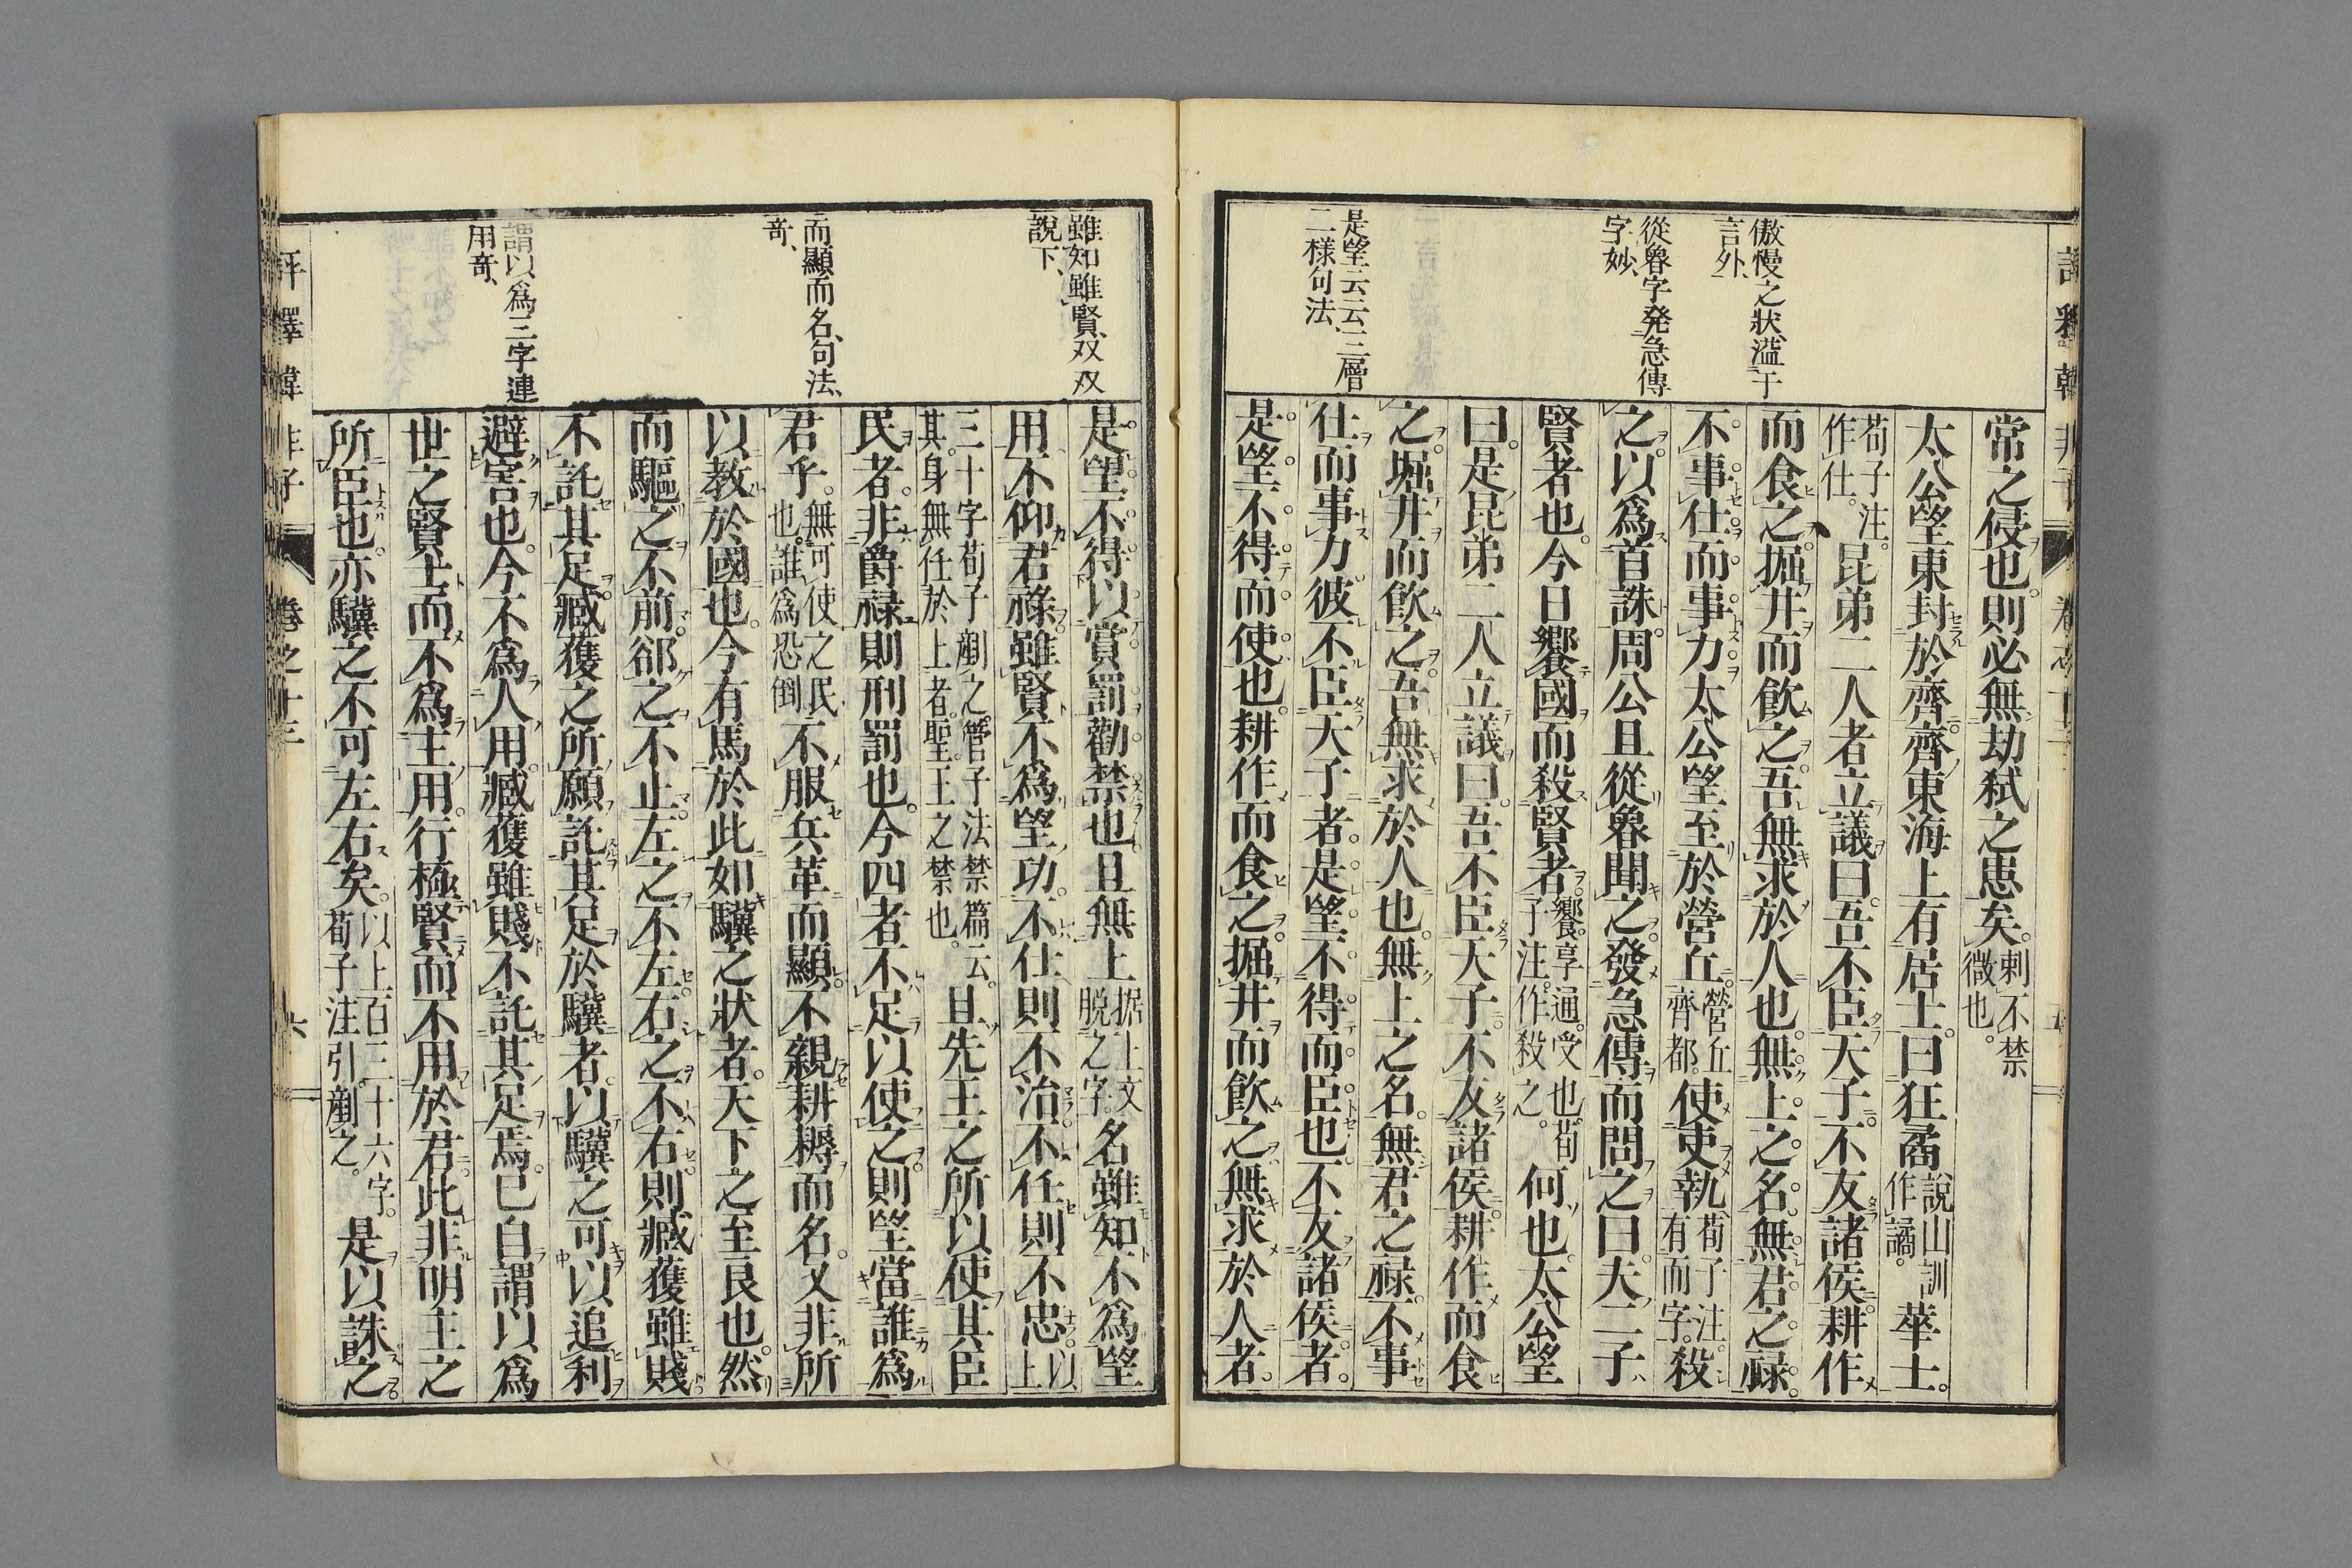 傲慢之狀、溢于
言外、
從魯字発急傳
字妙、
是望云云三層
二様句法、
常之侵也則必無劫弑之患矣。剌不禁
微也。
太公望東封於齊齊東海上有居士。曰狂矞說山訓
作譎。華士。
荀子注。
作仕。昆弟二人者立議曰。吾不臣天子。不友諸侯。耕作
而食之。掘井而飲之。吾無求於人也。無上之名。無君之祿。
不事仕而事力太公望至於營丘。營丘
齊都。使吏執荀子注。
有而字。殺
之。以爲首誅。周公旦從魯聞之。發急傳而問之曰。夫二子
賢者也。今日饗國而殺賢者。饗。享通。受也。荀
子注。作殺之。何也。太公望
曰。是昆弟二人立議曰。吾不臣天子。不友諸侯。耕作而食
之。堀井而飲之。吾無求於人也。無上之名。無君之祿。不事
仕而事力彼不臣天子者。是望不得而臣也。不友諸侯者。
是望不得而使也。耕作而食之。掘井而飲之。無求於人者。
雖知雖賢、双双
說下、
而顯而名、句法、
奇、
謂以爲三字連
用奇、
是望不得以賞罰勸禁也且無上据上文
脱之字。名雖知不爲望
用不仰君祿。雖賢不爲望功。不仕則不治。不任則不忠。以上
三十字荀子劗之。管子法禁篇云。
其身無任於上者。聖王之禁也。且先王之所以使其臣
民者。非爵祿則刑罰也。今四者不足以使之。則望當誰爲
君乎。無可使之民
也。誰爲恐倒不服兵革而顯。不親耕耨而名。又非所
以教於國也。今有馬於此如驥之狀者。天下之至良也。然
而驅之不前。郤之不止。左之不左。右之不右。則臧獲雖賤
不託其足。臧獲之所願託其足於驥者。以驥之可以追利
避害也。今不爲人用。臧獲雖賤不託其足焉。已自謂以爲
世之賢士而不爲主用。行極賢而不用於君。此非明主之
所臣也。亦驥之不可左右矣。以上百三十六字。
荀子注引。劗之。是以誅之。
評釋韓非子　卷之十三　六